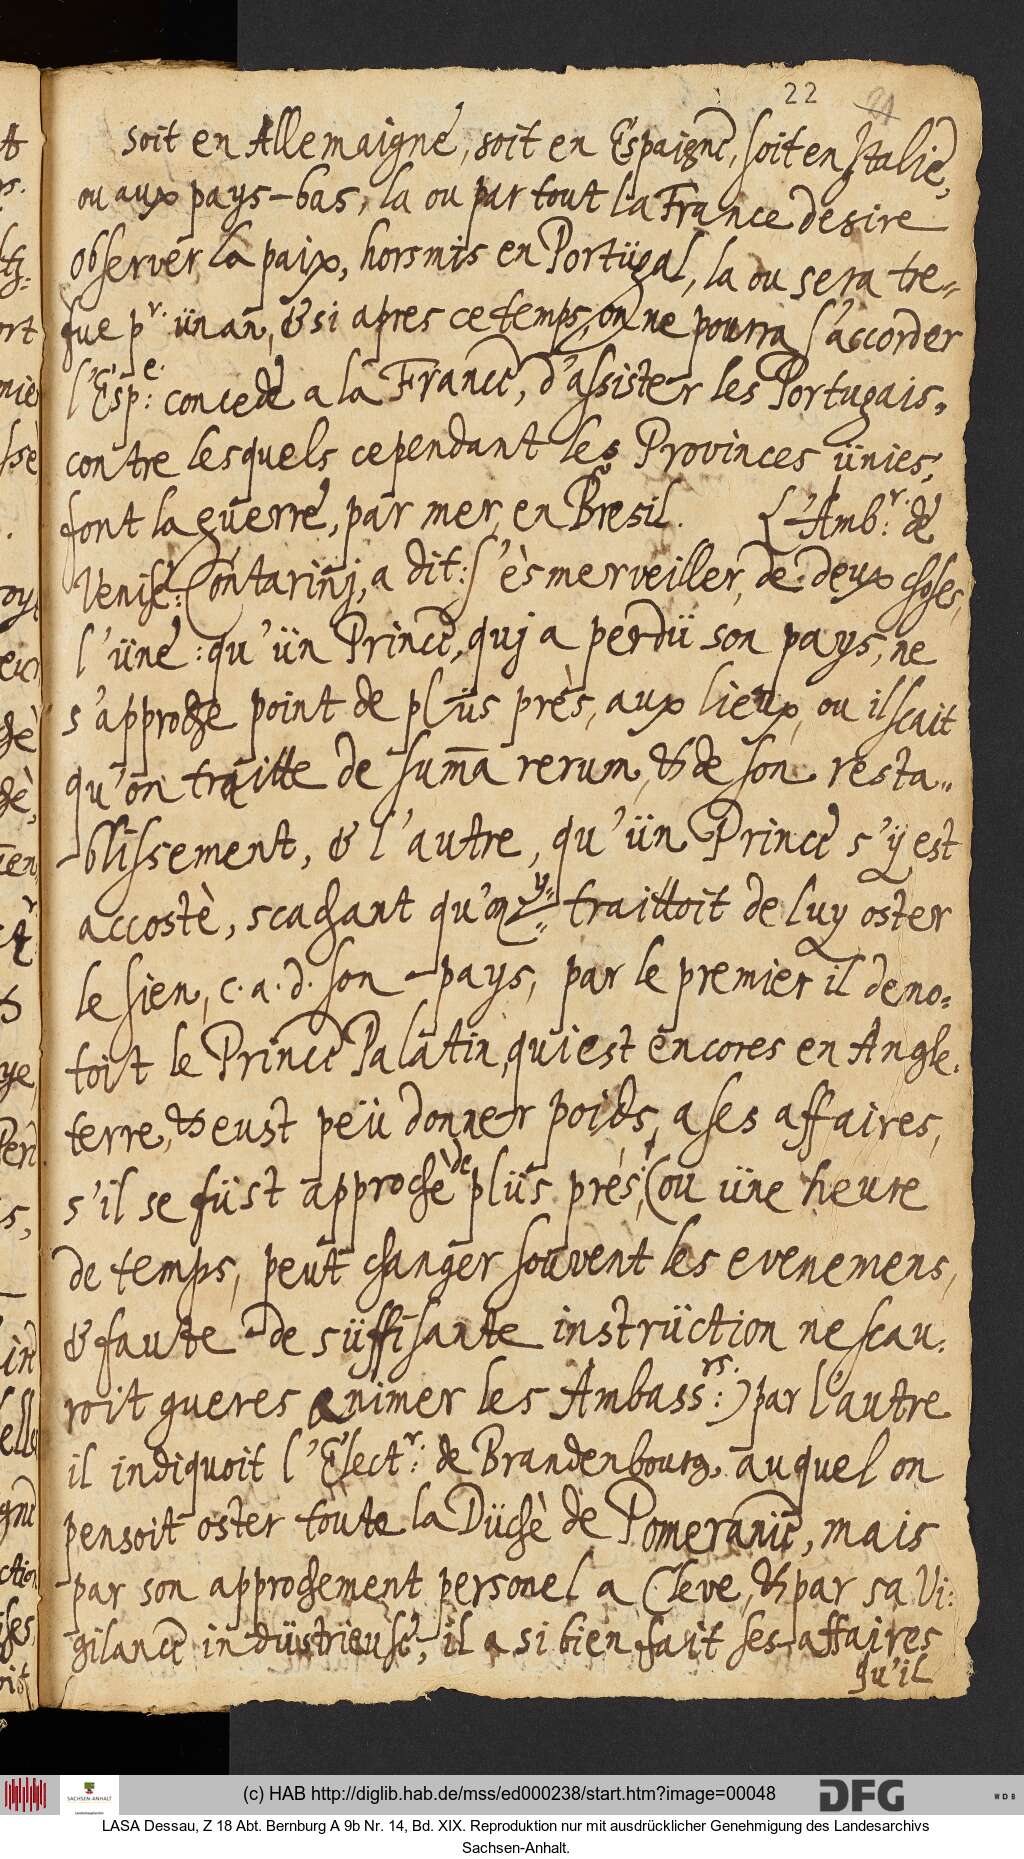 22 21
soit en Allemaigne, soit en Espaigne, soit en Italie,
ou aux pays-bas, la ou par tout la France desire
observer la paix, horsmis en Portügal, la ou sera tre-
fue pr. ün an, & si apres ce temps, on ne pourra s'accorder
l'Espe: concede a la France, d'assister les Portugais,
contre lesquels cependant les Provinces ünies,
font la guerre, par mer, en Bresil. L'Ambr: de
Venise: Contarinj, a dit: s'ès merveiller, de deux choses,
l'üne: qu'ün Prince, quj a perdü son pays, ne
s'approche point de plüs près, aux lieux, ou il scait
qu'on traitte de sum̄a rerum, & de son resta-
blissement, & l'autre, qu'ün Prince s'ÿ est
accostè, scachant qu'on y traittoit de luy oster
le sien, c. a. d. son pays, par le premier il deno-
toit le Prince Palatin, qui est encores en Angle-
terre, & eust peü donner poids, a ses affaires,
s'il se füst approchè de plüs pres, (ou üne heure
de temps, peut changer souvent les evenemens,
& faute de süffisante instrüction ne scau-
roit gueres animer les Ambassrs:) par l'autre
il indiquoit l'Electr: de Brandenbourg, auquel on
pensoit oster toute la Düchè de Pomeranie, mais
par son approchement personel a Cleve, & par sa Vi-
gilance indüstrieuse, il a si bien fait ses affaires
qu'il
(c) HAB http://diglib.hab.de/mss/ed000238/start.htm?image=00048
SACHSEN-ANHALT
DFG
WDB
LASA Dessau, Z 18 Abt. Bernburg A 9b Nr. 14, Bd. XIX. Reproduktion nur mit ausdrücklicher Genehmigung des Landesarchivs
Sachsen-Anhalt.